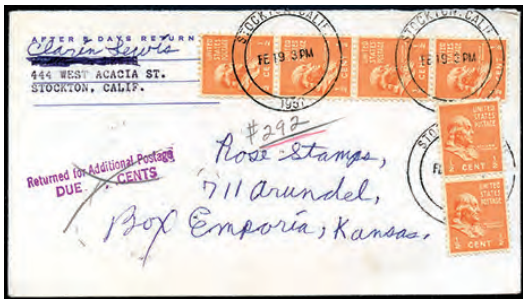 AFTER 5 DAYS RETURN
Clarin Lewis
444 WEST ACACIA ST.
STOCKTON, CALIF.
STOCKTON, CALIF.
FE 19 3 PM
1951
STOCKTON, CALIF.
FE 19 3 PM
UNITED STATES POSTAGE
1/2 CENT 1/2
UNITED STATES POSTAGE
1/2 CENT
UNITED STATES POSTAGE
1/2 CENT
#292
Returned for Additional Postage
DUE CENTS
Rose Stamps,
711 Arundel,
Box Emporia, Kansas.